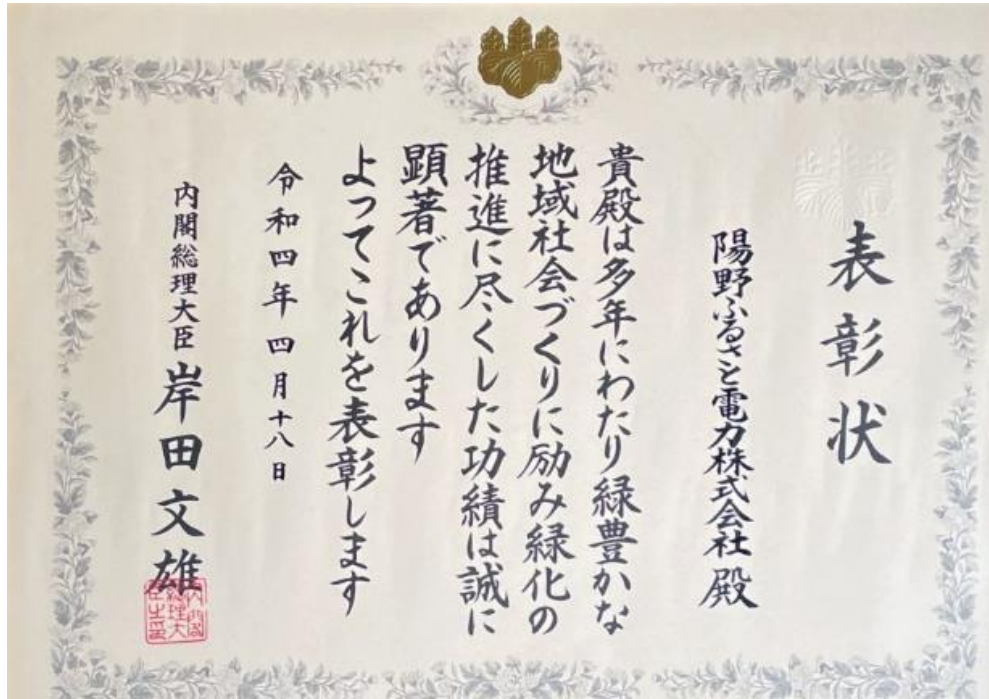 表彰状
陽野ふるさと電力株式会社 殿
貴殿は多年にわたり緑豊かな
地域社会づくりに励み緑化の
推進に尽くした功績は誠に
顕著であります
よってこれを表彰します
令和四年四月十八日
内閣総理大臣 岸田文雄
内閣総理大臣之印